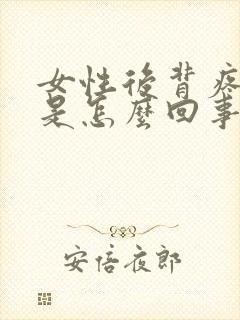 女性后背疼
是怎麼回事
安倍夜郎